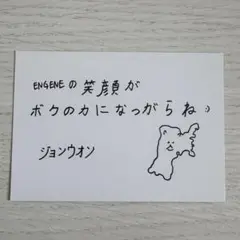 ENGENEの笑顔が
ボクのカになっがらね :)
ジョンウオン